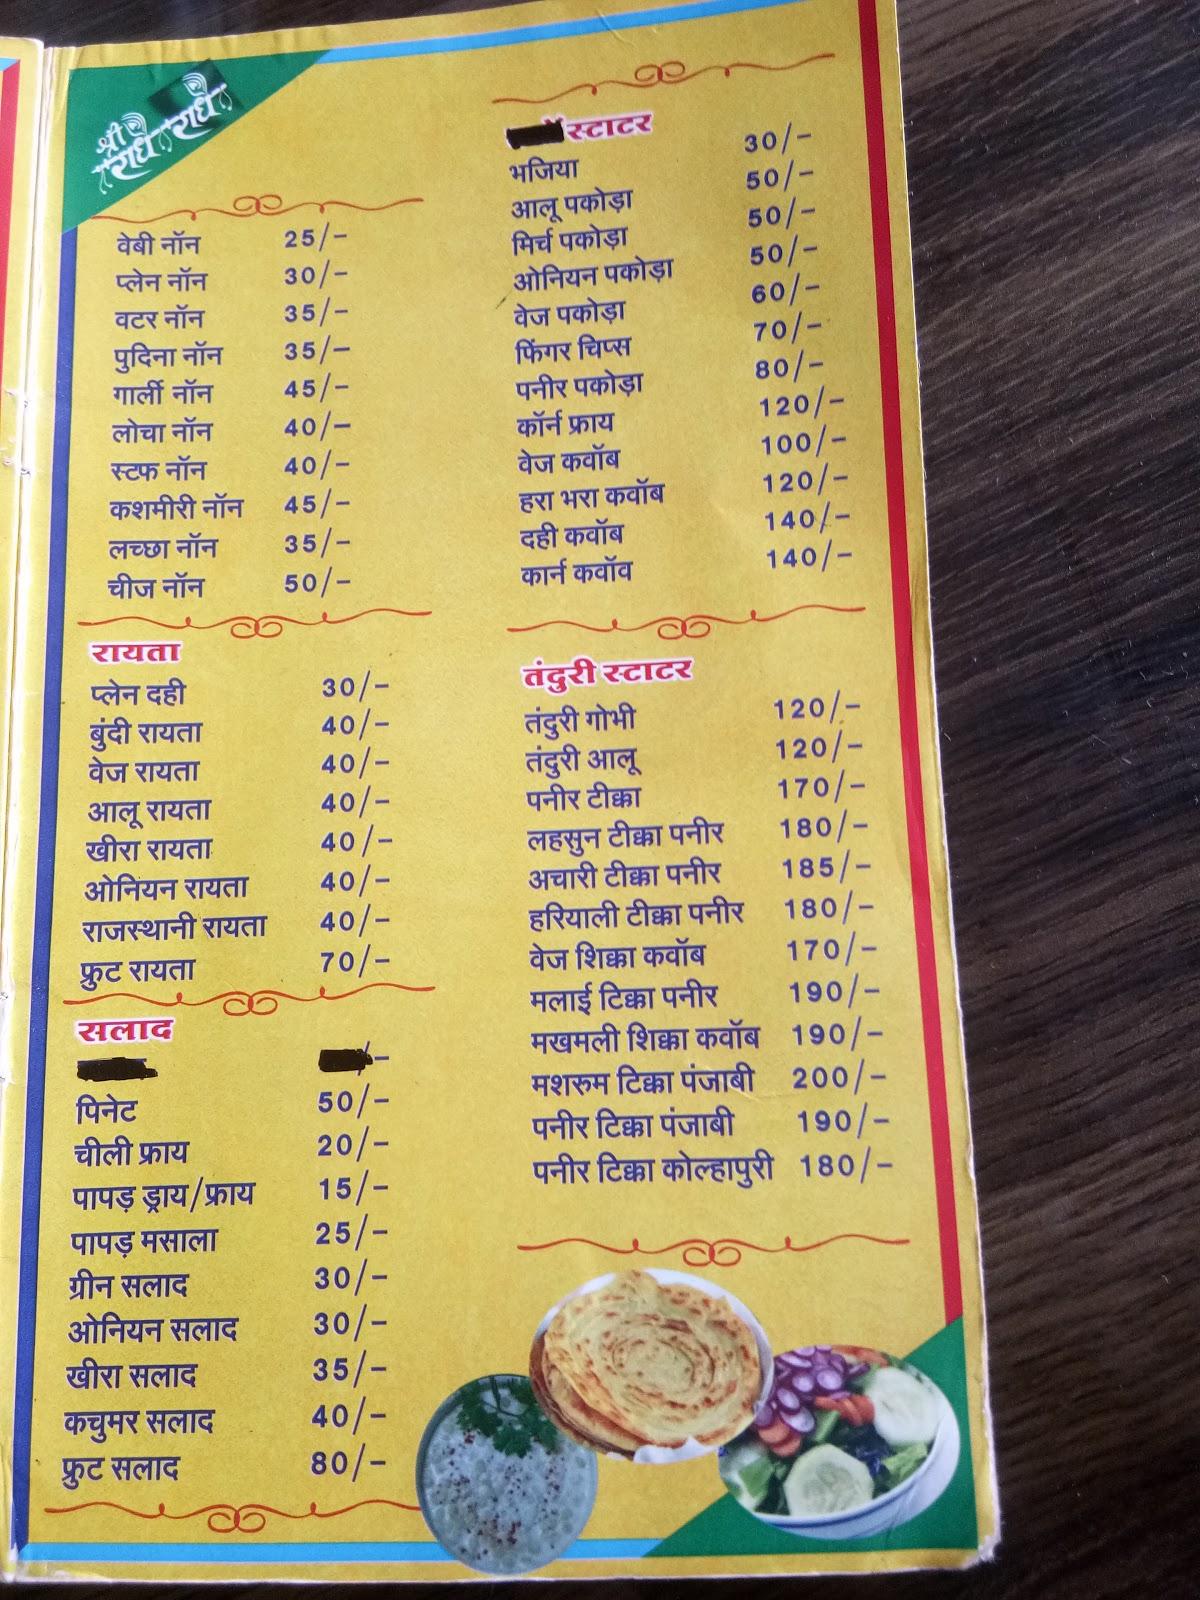 श्री
राधे राधे
वेबी नॉन 25/-
प्लेन नॉन 30/-
वटर नॉन 35/-
पुदिना नॉन 35/-
गार्ली नॉन 45/-
लोचा नॉन 40/-
स्टफ नॉन 40/-
कशमीरी नॉन 45/-
लच्छा नॉन 35/-
चीज नॉन 50/-
रायता
प्लेन दही 30/-
बुंदी रायता 40/-
वेज रायता 40/-
आलू रायता 40/-
खीरा रायता 40/-
ओनियन रायता 40/-
राजस्थानी रायता 40/-
फ्रुट रायता 70/-
सलाद
पिनेट 50/-
चीली फ्राय 20/-
पापड़ ड्राय/फ्राय 15/-
पापड़ मसाला 25/-
ग्रीन सलाद 30/-
ओनियन सलाद 30/-
खीरा सलाद 35/-
कचुमर सलाद 40/-
फ्रुट सलाद 80/-
स्टाटर
भजिया 30/-
आलू पकोड़ा 50/-
मिर्च पकोड़ा 50/-
ओनियन पकोड़ा 50/-
वेज पकोड़ा 60/-
फिंगर चिप्स 70/-
पनीर पकोड़ा 80/-
कॉर्न फ्राय 120/-
वेज कवॉब 100/-
हरा भरा कवॉब 120/-
दही कवॉब 140/-
कार्न कवॉव 140/-
तंदुरी स्टाटर
तंदुरी गोभी 120/-
तंदुरी आलू 120/-
पनीर टीक्का 170/-
लहसुन टीक्का पनीर 180/-
अचारी टीक्का पनीर 185/-
हरियाली टीक्का पनीर 180/-
वेज शिक्का कवॉब 170/-
मलाई टिक्का पनीर 190/-
मखमली शिक्का कवॉब 190/-
मशरुम टिक्का पंजाबी 200/-
पनीर टिक्का पंजाबी 190/-
पनीर टिक्का कोल्हापुरी 180/-